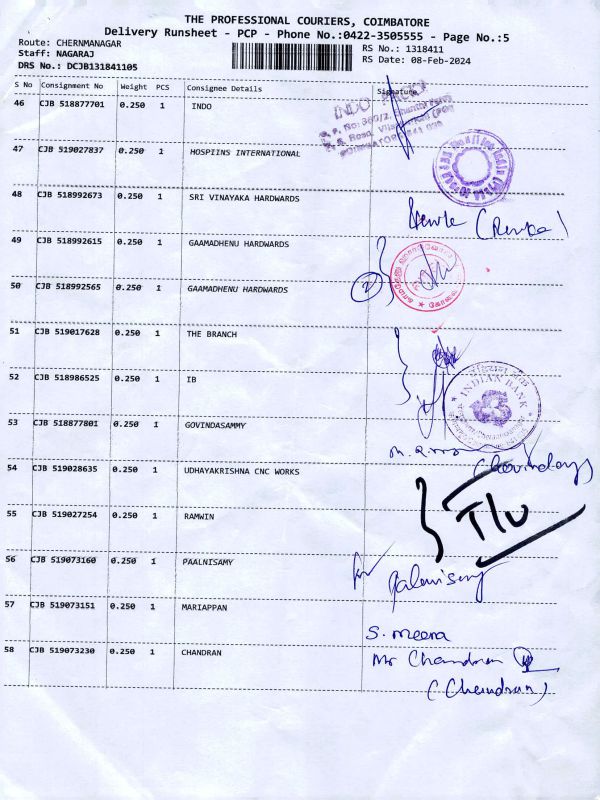 THE PROFESSIONAL COURIERS, COIMBATORE
Delivery Runsheet - PCP - Phone No.:0422-3505555 - Page No.:5
Route: CHERNMANAGAR
Staff: NAGARAJ
DRS No.: DCJB131841105
RS No.: 1318411
RS Date: 08-Feb-2024
S No Consignment No Weight PCS Consignee Details Signature
46 CJB 518877701 0.250 1 INDO
INDO
47 CJB 519027837 0.250 1 HOSPIINS INTERNATIONAL
48 CJB 518992673 0.250 1 SRI VINAYAKA HARDWARDS
49 CJB 518992615 0.250 1 GAAMADHENU HARDWARDS
50 CJB 518992565 0.250 1 GAAMADHENU HARDWARDS
2
51 CJB 519017628 0.250 1 THE BRANCH
52 CJB 518986525 0.250 1 IB
INDIAN BANK
53 CJB 518877801 0.250 1 GOVINDASAMMY
54 CJB 519028635 0.250 1 UDHAYAKRISHNA CNC WORKS
55 CJB 519027254 0.250 1 RAMWIN
T/U
56 CJB 519073160 0.250 1 PAALNISAMY
57 CJB 519073151 0.250 1 MARIAPPAN
S. meera
58 CJB 519073230 0.250 1 CHANDRAN
Mr Chandran
(Chandran)